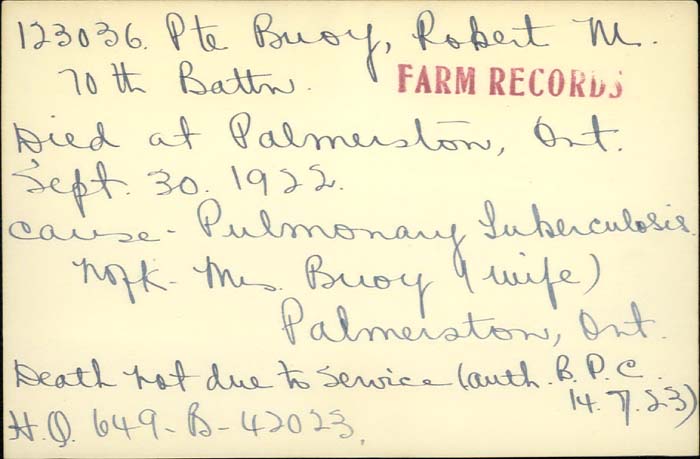 123036. Pte Buoy, Robert M.
70th Battn. FARM RECORDS
Died at Palmerston, Ont.
Sept. 30. 1922.
cause - Pulmonary Tuberculosis.
Nofk - Mrs. Buoy (wife)
Palmerston, Ont.
Death not due to Service (auth. B.P.C.
14.7.23)
H.Q. 649-B-42023.